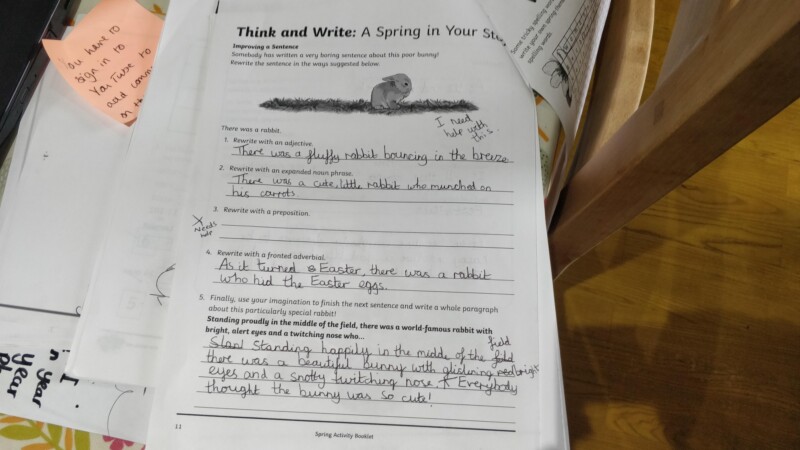 You have to
sign in to
YouTube to
add comm
on th
Think and Write: A Spring in Your Ste
Improving a Sentence
Somebody has written a very boring sentence about this poor bunny!
Rewrite the sentence in the ways suggested below.
I need
help with
this.
There was a rabbit.
1. Rewrite with an adjective.
There was a fluffy rabbit bouncing in the breeze
2. Rewrite with an expanded noun phrase.
There was a cute, little rabbit who munched on
his carrots
3. Rewrite with a preposition.
X
Needs
help
4. Rewrite with a fronted adverbial.
As it turned Easter, there was a rabbit
who hid the Easter eggs.
5. Finally, use your imagination to finish the next sentence and write a whole paragraph
about this particularly special rabbit!
Standing proudly in the middle of the field, there was a world-famous rabbit with
bright, alert eyes and a twitching nose who...
field
Standing happily in the middle of the
there was a beautiful bunny with glistening red bright
eyes and a snotty twitching nose. Everybody
thought the bunny was so cute!
11
Spring Activity Booklet
Some tricky spelling words
write your own spring
spelling words
I
n year
year